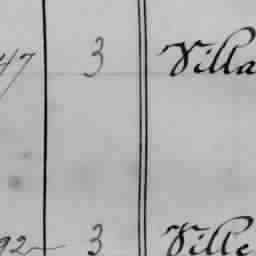 47 3 Villa
92 3 Ville